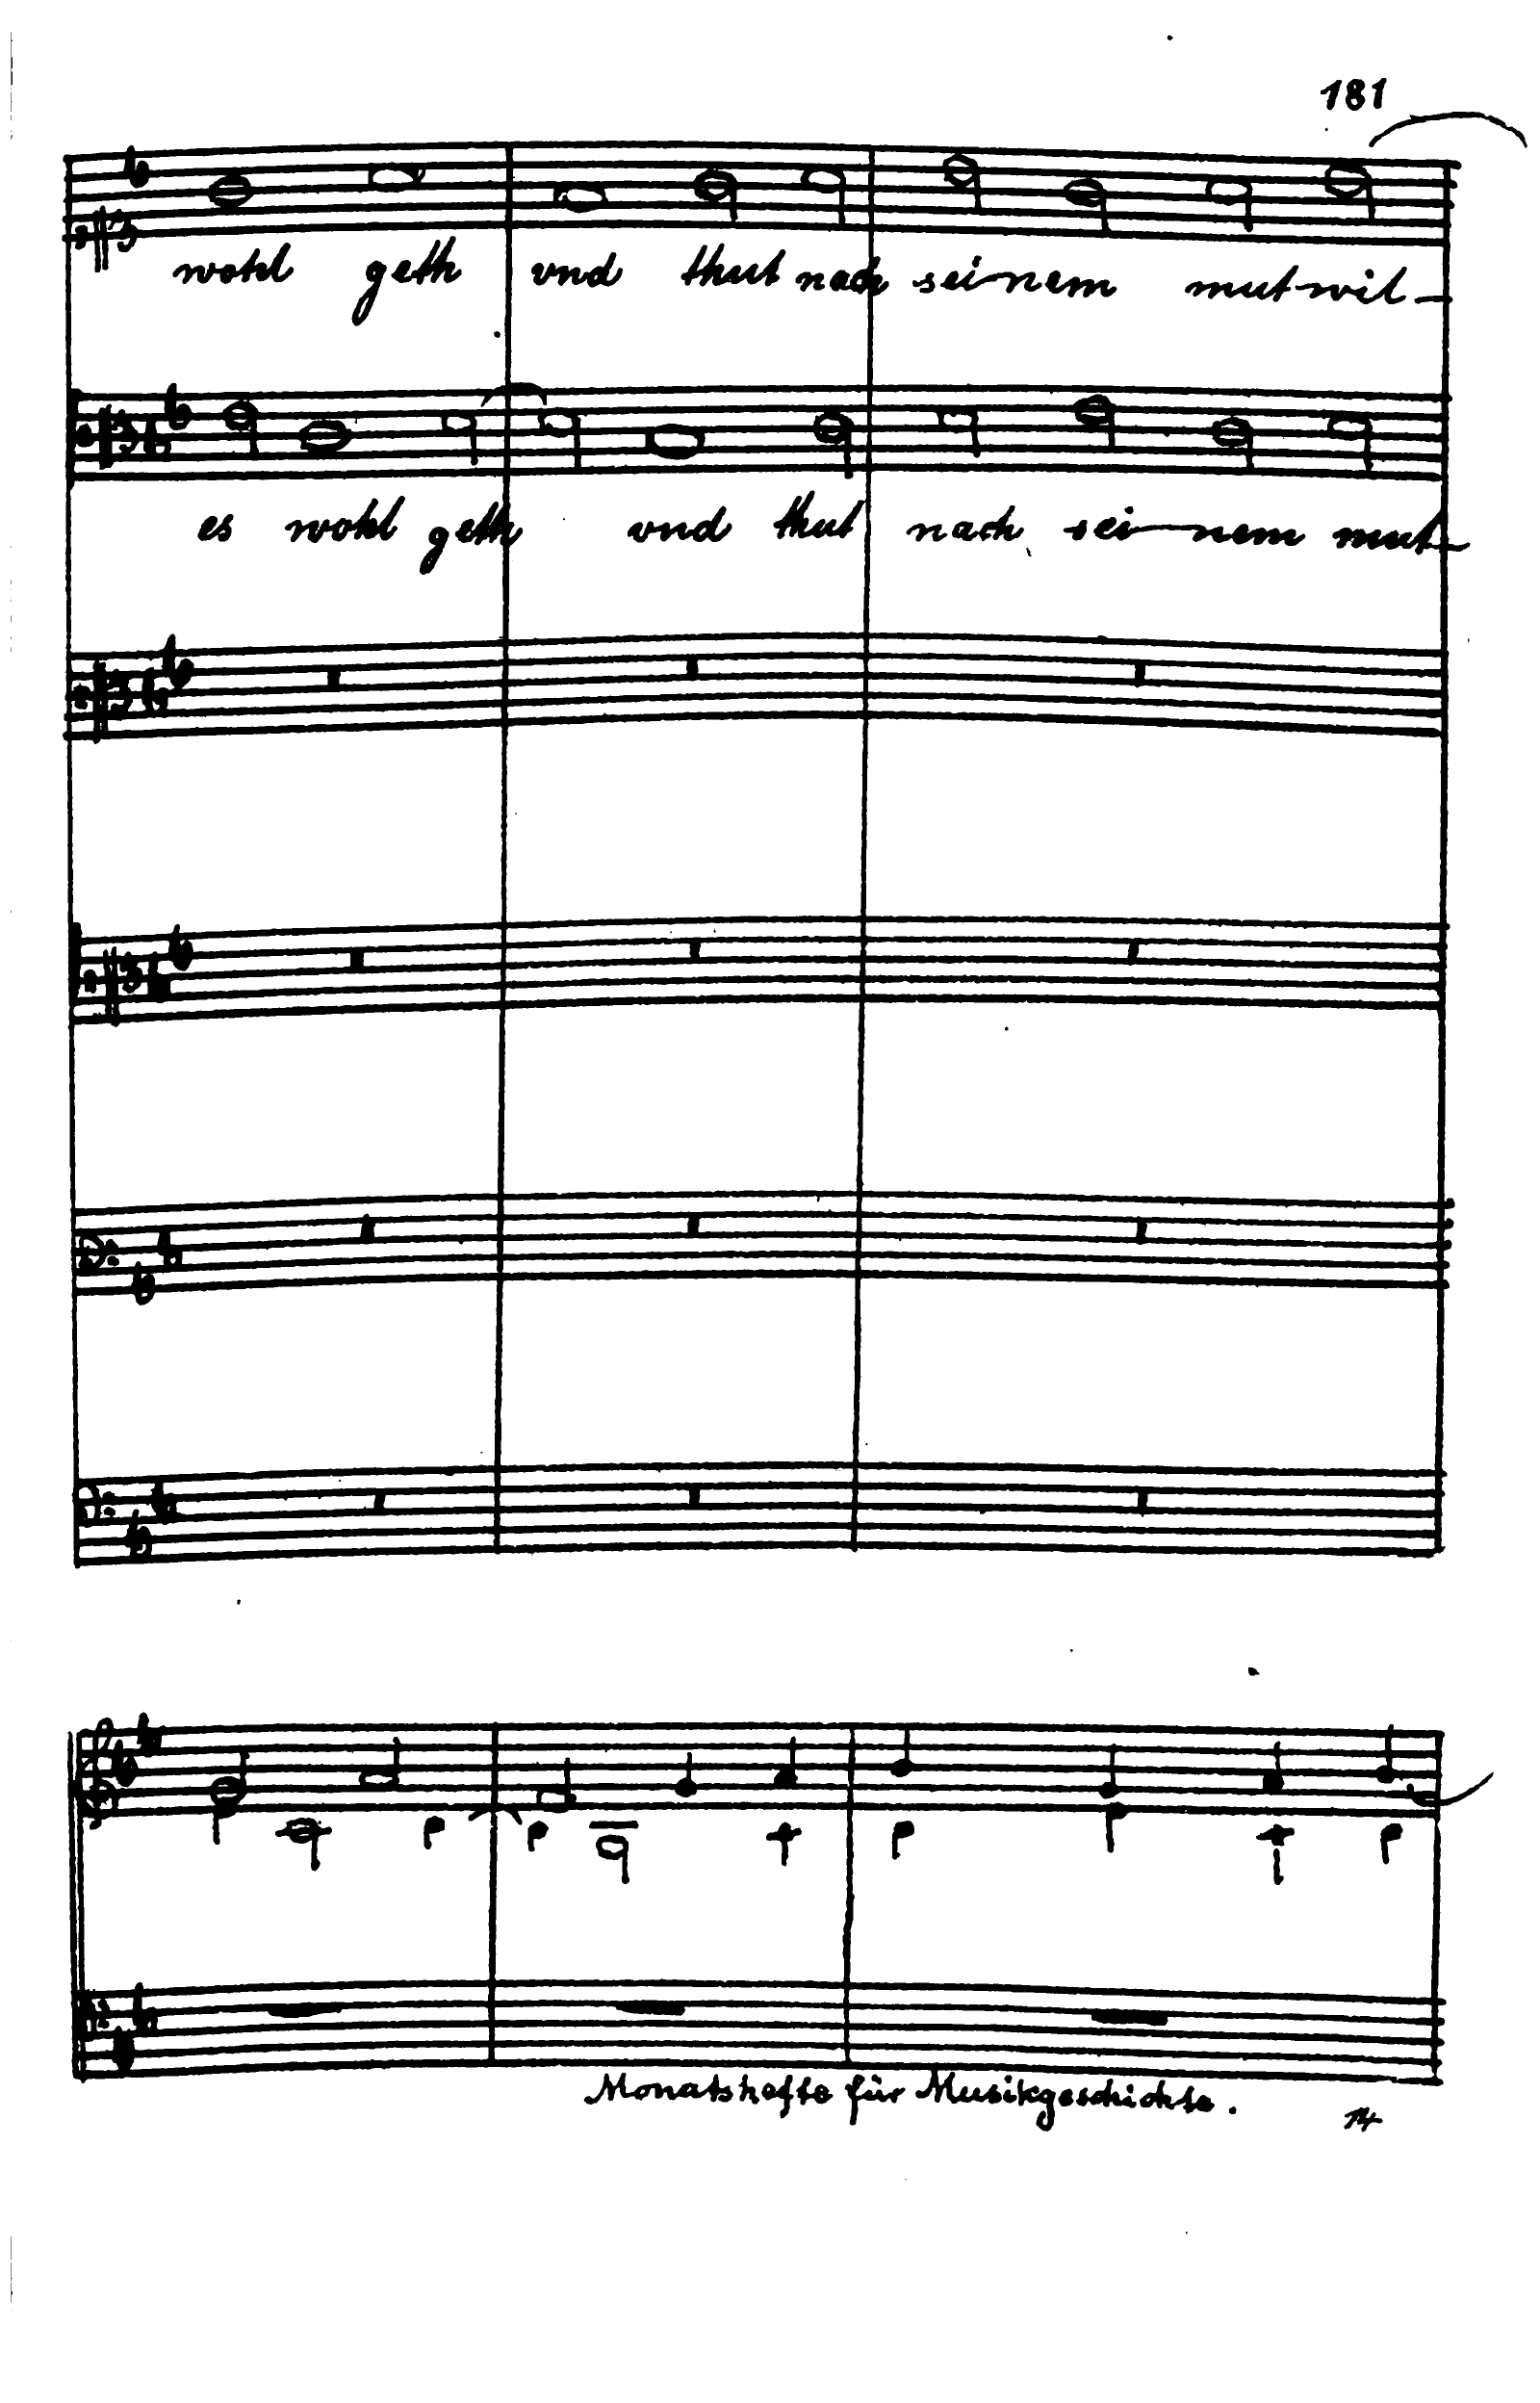 181
wohl geth vnd thut nach sei-nem mut-wil-
es wohl geth vnd thut nach sei-nem mut-
Monatshefte für Musikgeschichte. 14